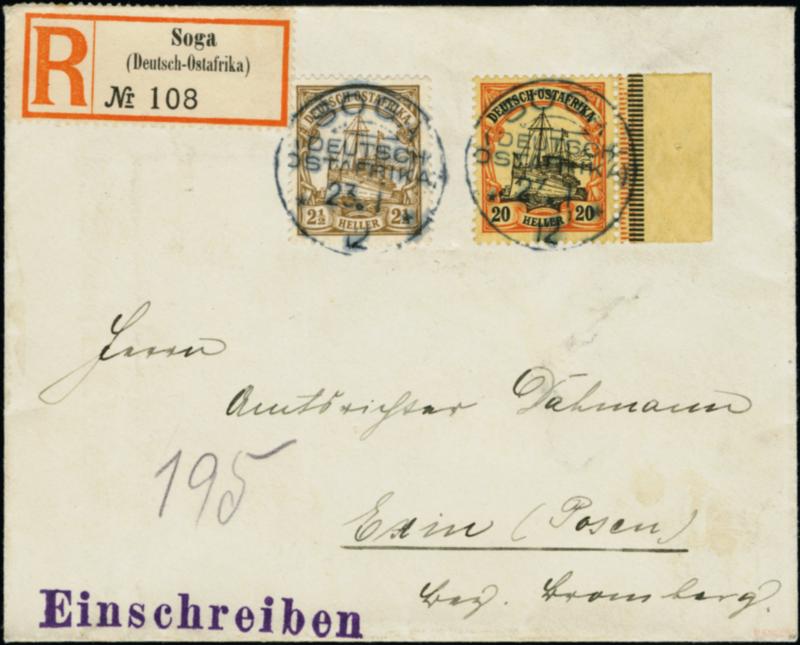 R
Soga
(Deutsch-Ostafrika)
№ 108
DEUTSCH-OSTAFRIKA
2½ 2½
HELLER
SOGA
DEUTSCH-
OSTAFRIKA
23.1
12
DEUTSCH-OSTAFRIKA
20 20
HELLER
DEUTSCH-
OSTAFRIKA
23.1
12
Herrn
Amtsrichter Dahmann
195
Exin (Posen)
Bez. Bromberg.
Einschreiben